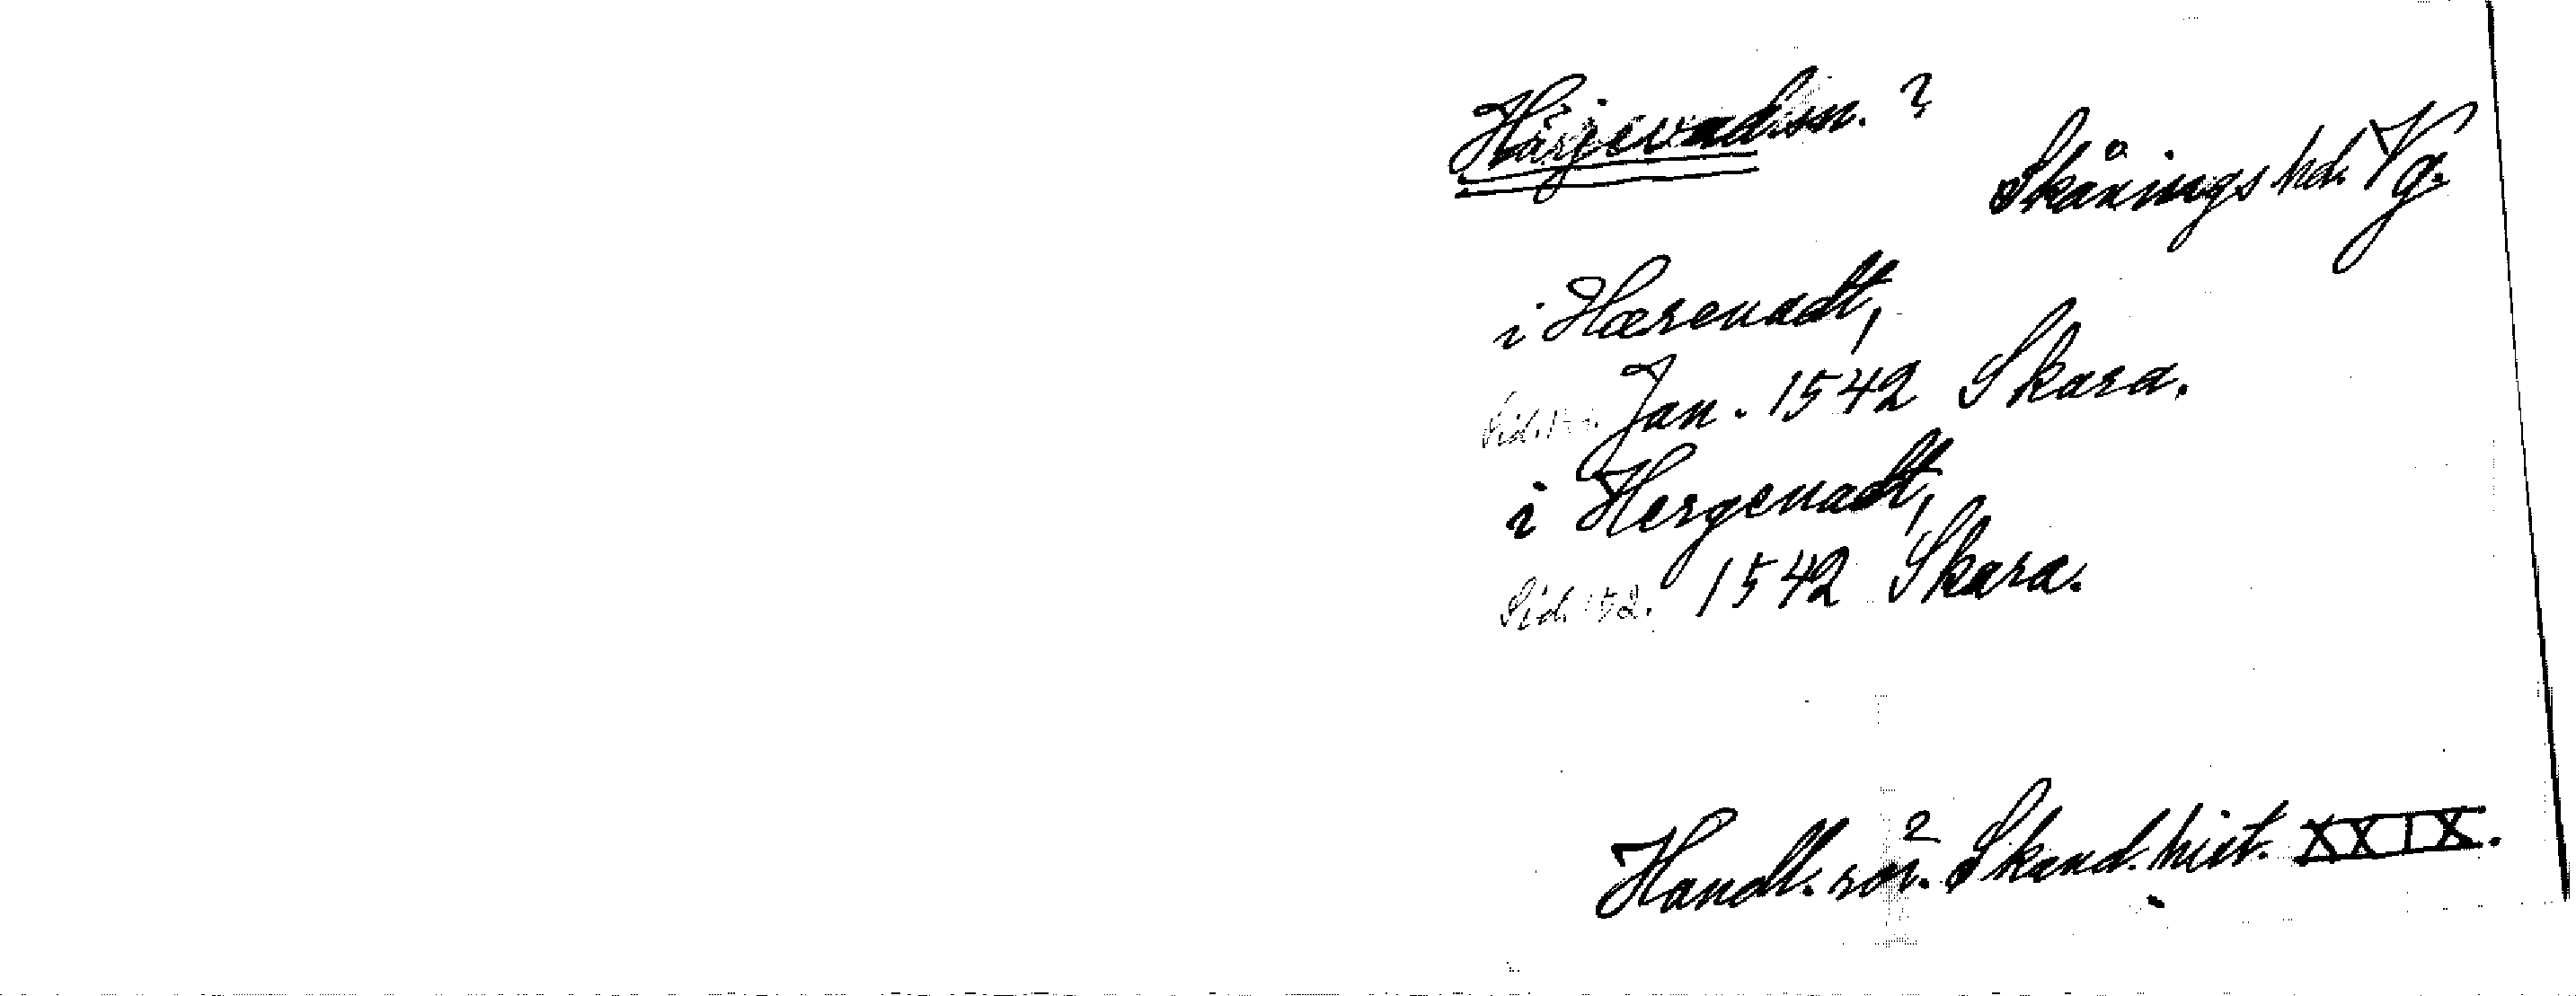 Härjevad sn. ?
Skånings hd. Vg.
i Hærevadt,
Jan. 1542 Skara.
i Hergevadt,
Sid. 152. 1542 Skara.
Handl. rör. Skand. hist. XXIX.